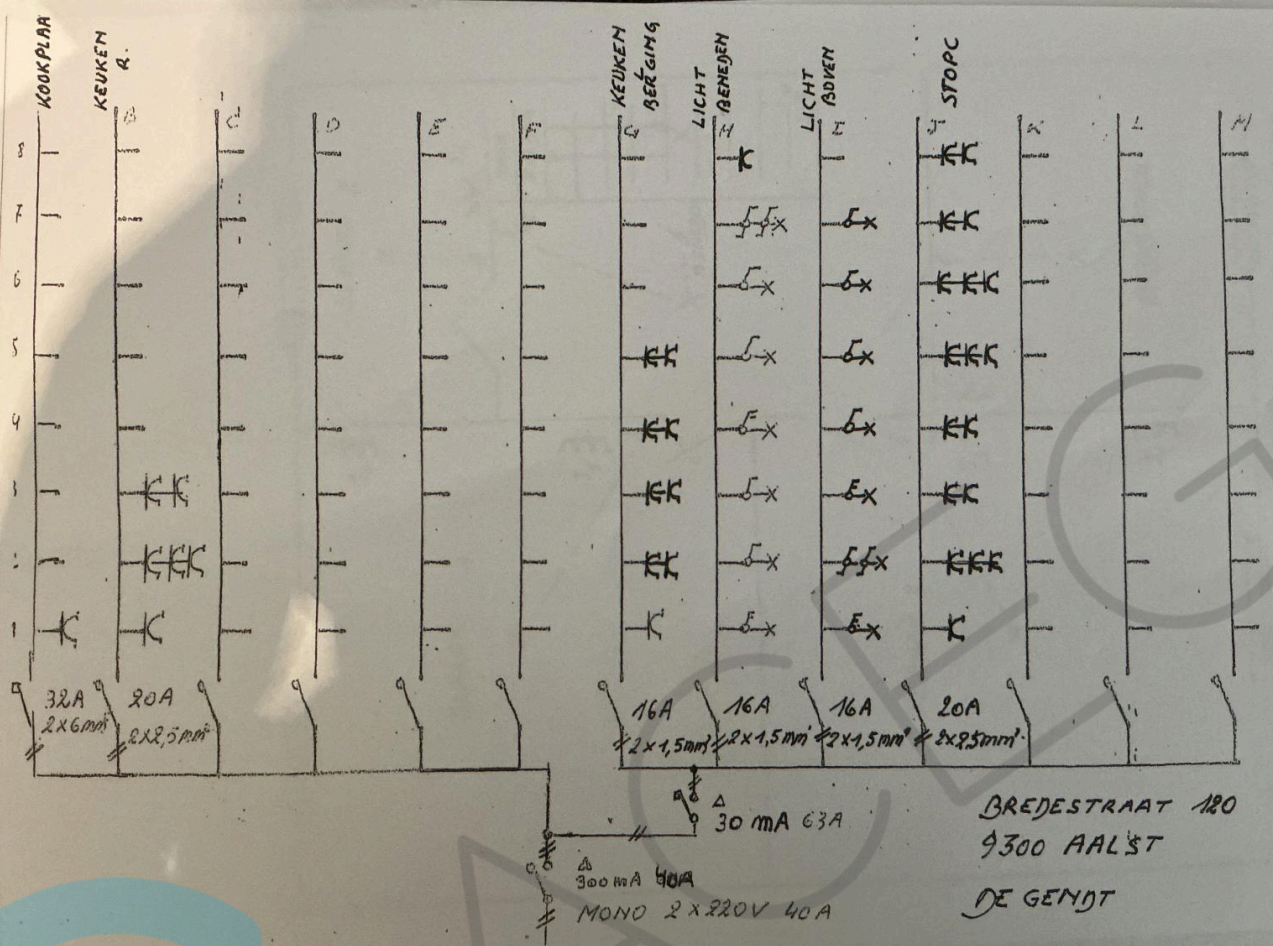 KOOKPLAA
KEUKEN
R.
KEUKEN
BERGING
LICHT
BENEDEN
LICHT
BOVEN
STOPC
B C D E F G H I J K L M
8
7
6
5
4
3
2
1
32A
2x6mm²
20A
2x2,5mm²
16A
2x1,5mm²
16A
2x1,5mm²
16A
2x1,5mm²
20A
2x2,5mm²
Δ
30 mA 63A
Δ
300mA 40A
MONO 2x220V 40A
BREDESTRAAT 120
9300 AALST
DE GENDT
ACEG